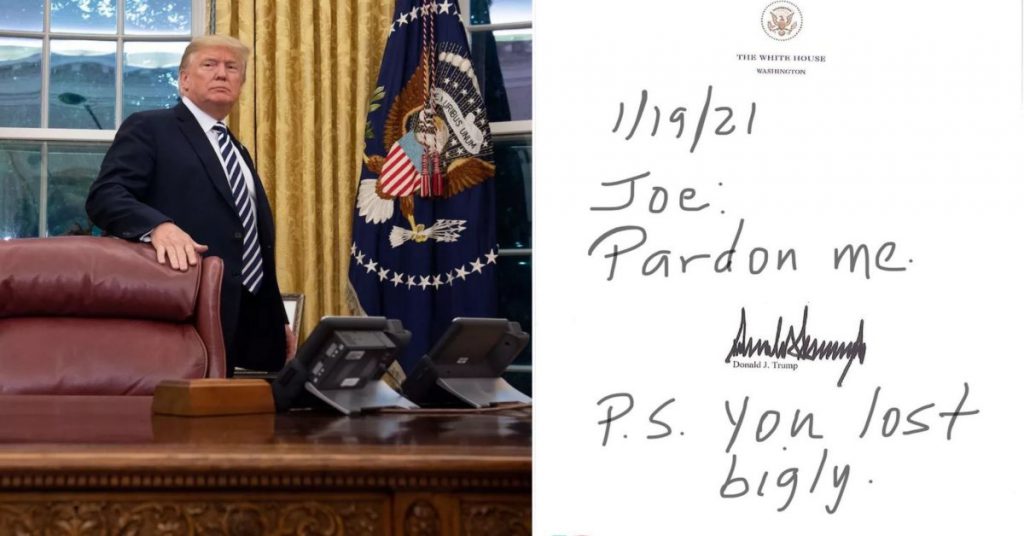 URIBUS UNUM
THE WHITE HOUSE
WASHINGTON
1/19/21
Joe:
Pardon me.
Donald J. Trump
P.S. You lost
bigly.